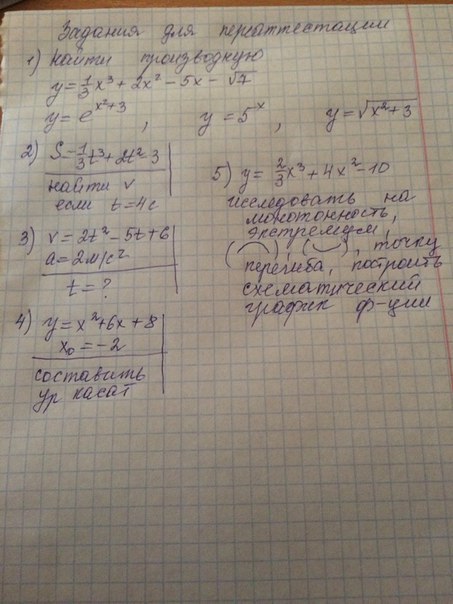 Задания для переаттестации
1) Найти производную
y = 1/3 x³ + 2x² − 5x − √7
y = e^(x²+3) , y = 5^x , y = √(x²+3)
2) S = 1/3 t³ + 2t² − 3
найти v
если t = 4с
3) v = 2t² − 5t + 6
a = 2м/с²
t = ?
4) y = x² + 6x + 8
x₀ = −2
составить
ур касат
5) y = 2/3 x³ + 4x² − 10
исследовать на
монотонность,
экстремум,
(⌒), (⌣), точку
перегиба, построить
схематический
график ф-ции